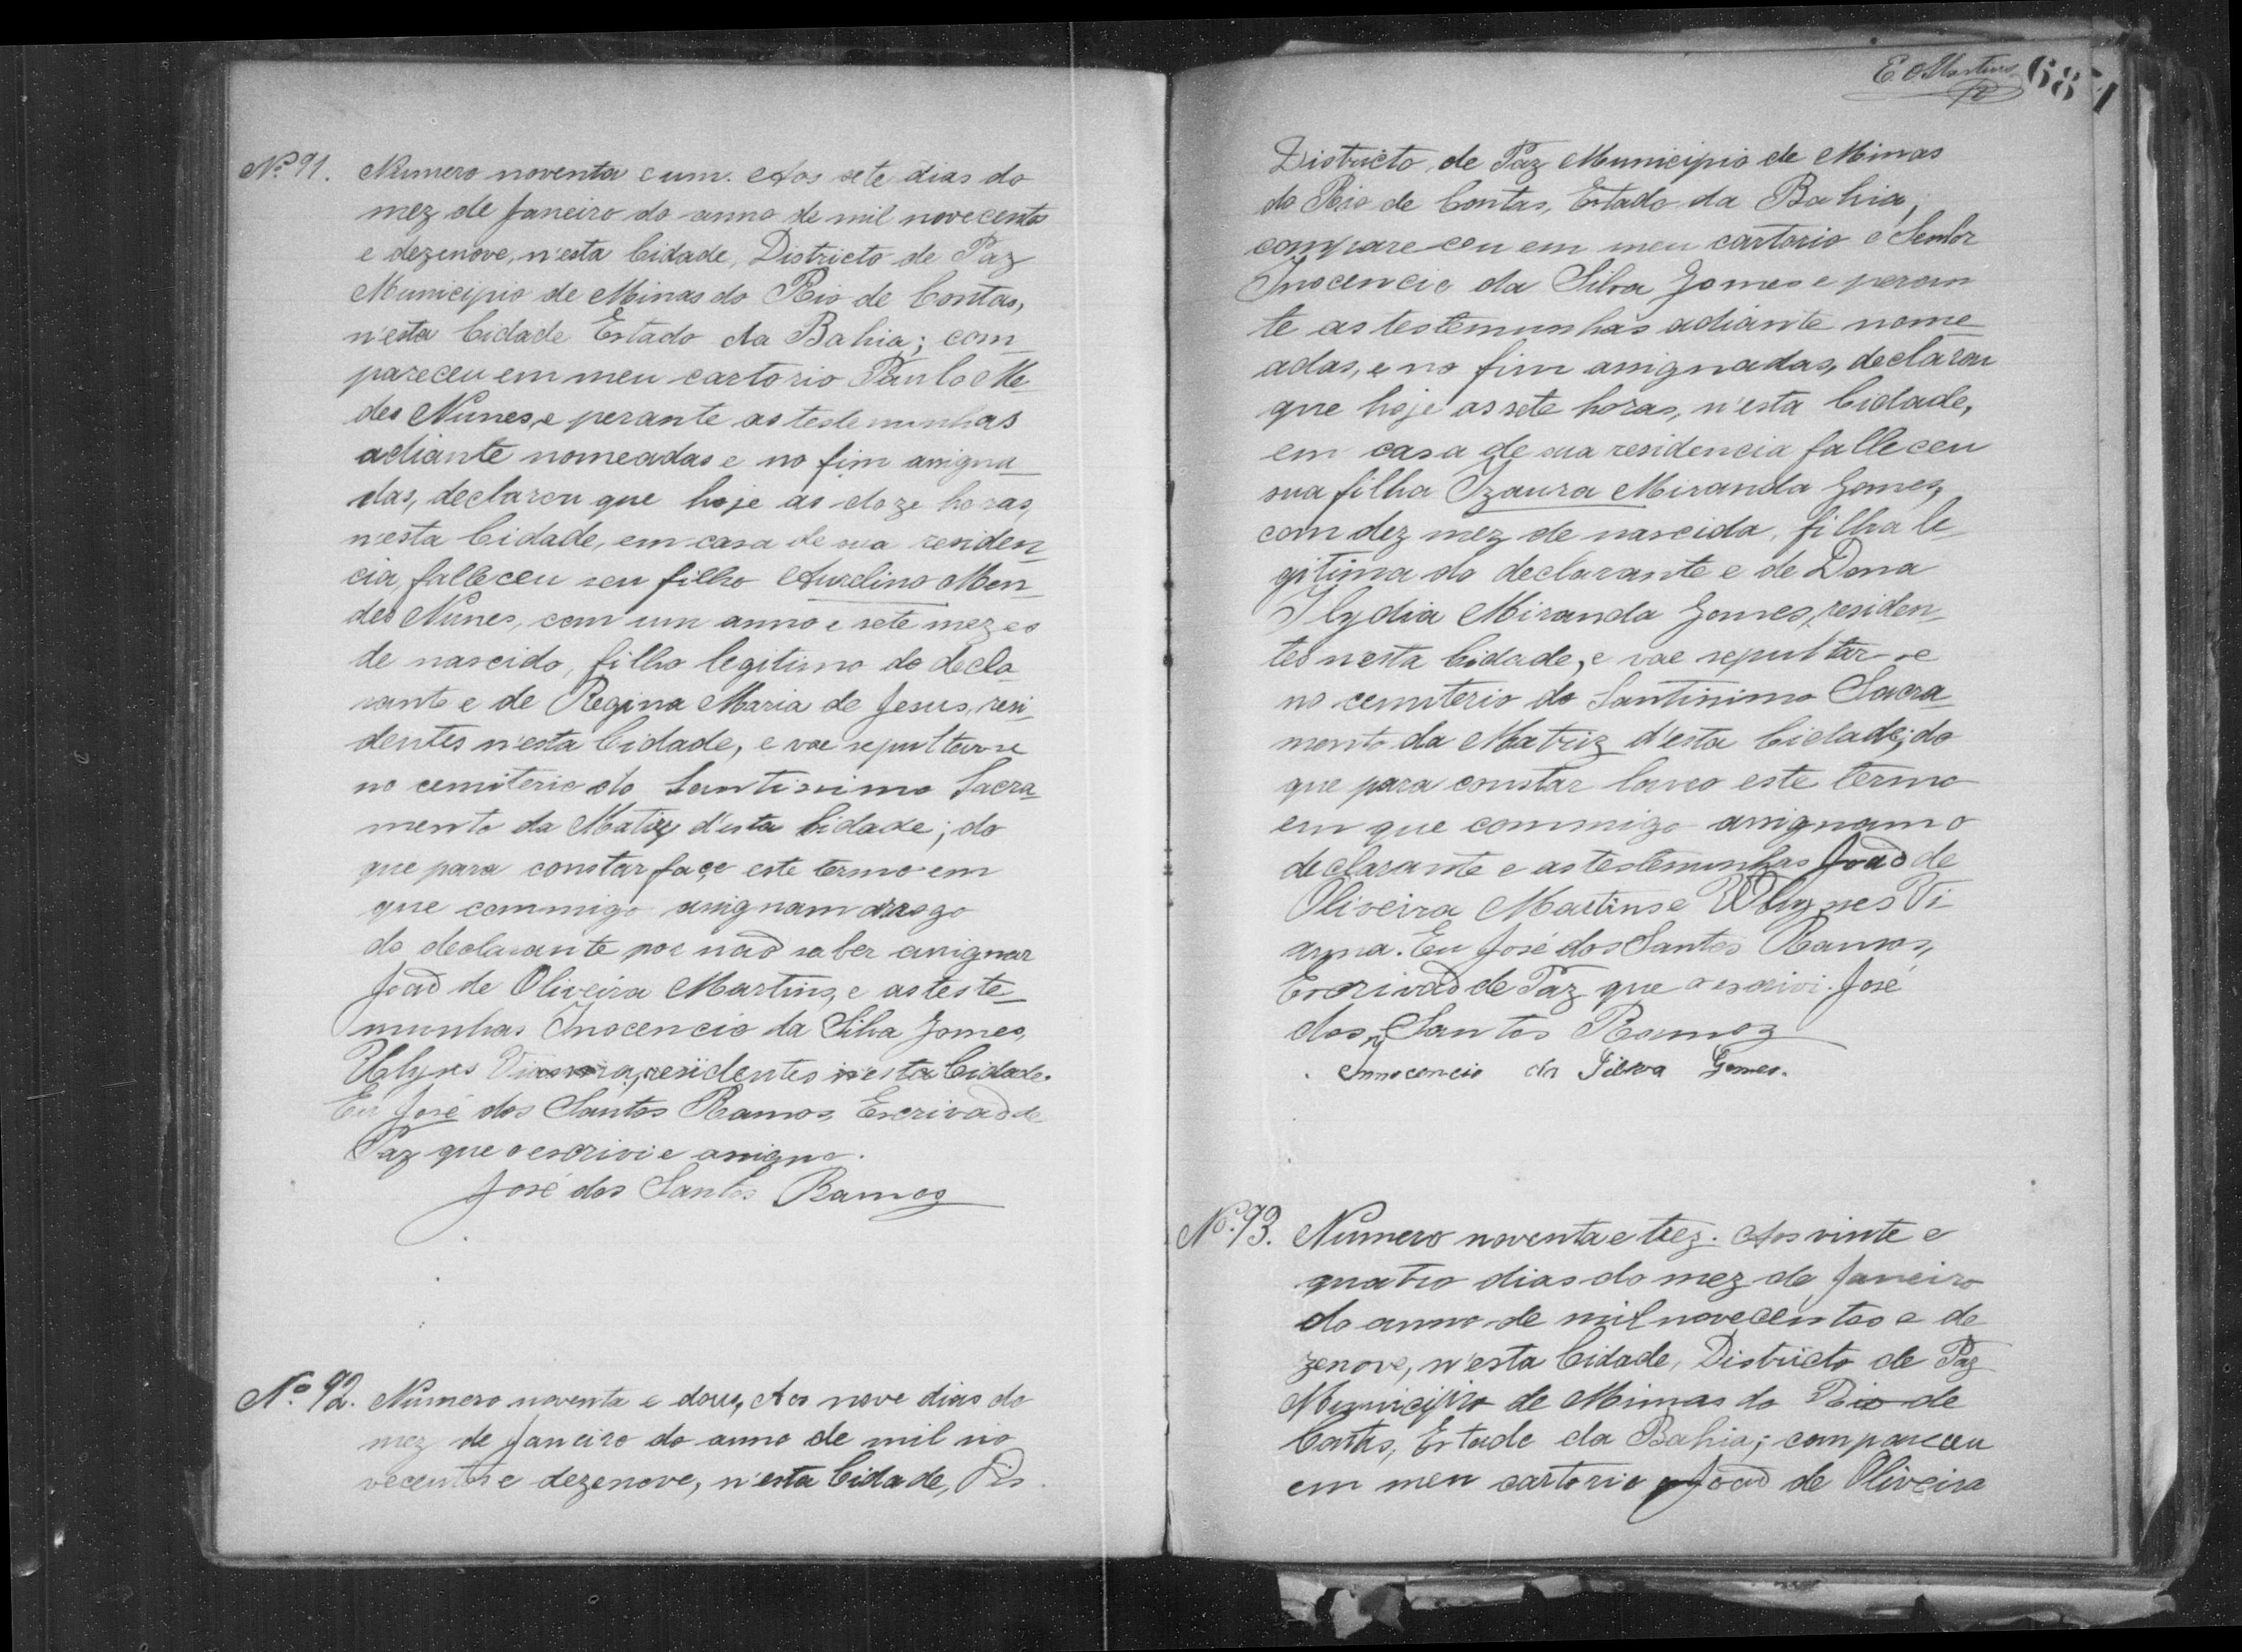 Nº 91. Numero noventa e um. Aos sete dias do
mez de Janeiro do anno de mil novecentos
e dezenove, n'esta Cidade, Districto de Paz
Municipio de Minas do Rio de Contas,
n'esta Cidade Estado da Bahia; com-
pareceu em meu cartorio Paulo Me-
des Nunes, e perante as testemunhas
adiante nomeadas e no fim assigna-
das, declarou que hoje as doze horas,
n'esta Cidade, em casa de sua residen-
cia, falleceu seu filho Aurelino Men-
des Nunes, com um anno e sete mezes
de nascido, filho legitimo do decla-
rante e de Regina Maria de Jesus, resi-
dentes n'esta Cidade, e vae sepultar-se
no cemiterio do Santissimo Sacra-
mento da Matriz d'esta Cidade; do
que para constar faço este termo em
que commigo assignam arogo
do declarante por não saber assignar
João de Oliveira Martins, e as teste-
munhas Inocencio da Silva Gomes,
Ulysses Vianna, residentes n'esta Cidade.
Eu José dos Santos Ramos, Escrivão de
Paz que o escrivi e assigno.
José dos Santos Ramos
Nº 92. Numero noventa e dous, Aos nove dias do
mez de Janeiro do anno de mil no
vecentos e dezenove, n'esta Cidade, Dis
E. O. Martins
687
Districto de Paz Municipio de Minas
do Rio de Contas, Estado da Bahia,
compareceu em meu cartorio o Senhor
Inocencio da Silva Gomes e peran
te as testemunhas adiante nome-
adas, e no fim assignadas, declarou
que hoje as sete horas, n'esta Cidade,
em casa de sua residencia falleceu
sua filha Izaura Miranda Gomes,
com dez mez de nascida, filha le-
gitima do declarante e de Dona
Ilydia Miranda Gomes, residen-
tes n'esta Cidade, e vae sepultar-se
no cemiterio do Santissimo Sacra-
mento da Matriz d'esta Cidade; do
que para constar lavro este termo
em que commigo assignam o
declarante e as testemunhas João de
Oliveira Martins e Ulysses Vi-
anna. Eu José dos Santos Ramos,
Escrivão de Paz que o escrivi. José
dos Santos Ramos
Innocencio da Silva Gomes.
Nº 93. Numero noventa e trez. Aos vinte e
quatro dias do mez de Janeiro
do anno de mil novecentos e de
zenove, n'esta Cidade, Districto de Paz
Municipio de Minas do Rio de
Contas, Estado da Bahia; compareceu
em meu cartorio João de Oliveira